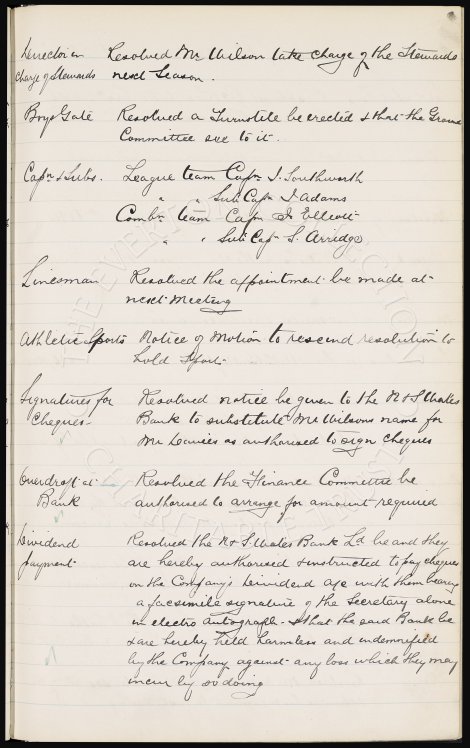 Director in Resolved Mr Wilson take charge of the Stewards
charge of Stewards next Season.
Boys Gate Resolved a Turnstile be erected & that the Ground
Committee see to it.
Capn & Subs. League team Capn J. Southworth
" " Sub Capn J Adams
Combn team Capn J. Elliott
" " Sub Capn S. Arridge
Linesman Resolved the appointment be made at
next meeting
Athletic Sports Notice of Motion to rescind resolution to
hold Sports
Signatures for Resolved notice be given to the N & S Wales
Cheques Bank to substitute Mr Wilsons name for
Mr Davies as authorised to sign cheques
Overdraft at Resolved the Finance Committee be
Bank authorised to arrange for amount required
Dividend Resolved the N & S. Wales Bank Ld be and they
payment are hereby authorised & instructed to pay cheques
on the Company's Dividend a/c with them bearing
a facsimile signature of the Secretary alone
in electro autograph & that the said Bank be
& are hereby held harmless and indemnified
by the Company against any loss which they may
incur by so doing
THE EVERTON COLLECTION
CHARITABLE TRUST